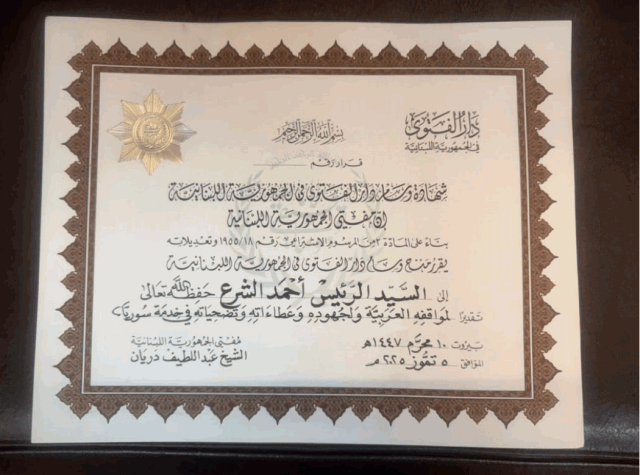 بسم الله الرحمن الرحيم
دار الفتوى
في الجمهورية اللبنانية
قرار رقم
شهادة وسام دار الفتوى في الجمهورية اللبنانية
إن مفتي الجمهورية اللبنانية
بناء على المادة ٢ من المرسوم الاشتراعي رقم ١٩٥٥/١٨ وتعديلاته
يقرر منح وسام دار الفتوى في الجمهورية اللبنانية
إلى السيد الرئيس أحمد الشرع حفظه الله تعالى
تقديرًا لمواقفه العربية ولجهوده وعطاءاته وتضحياته في خدمة سوريا
بيروت ١٠ محرم ١٤٤٧هـ
الموافق ٥ تموز ٢٠٢٥م
مفتي الجمهورية اللبنانية
الشيخ عبد اللطيف دريان